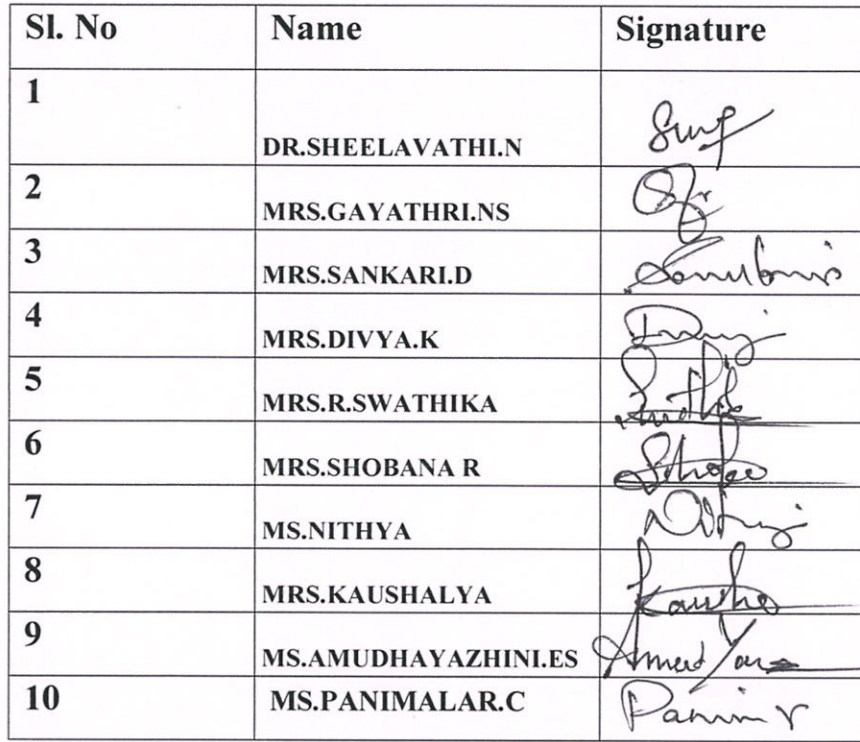 Sl. No Name Signature
1 DR.SHEELAVATHI.N
2 MRS.GAYATHRI.NS
3 MRS.SANKARI.D
4 MRS.DIVYA.K
5 MRS.R.SWATHIKA
6 MRS.SHOBANA R
7 MS.NITHYA
8 MRS.KAUSHALYA
9 MS.AMUDHAYAZHINI.ES
10 MS.PANIMALAR.C